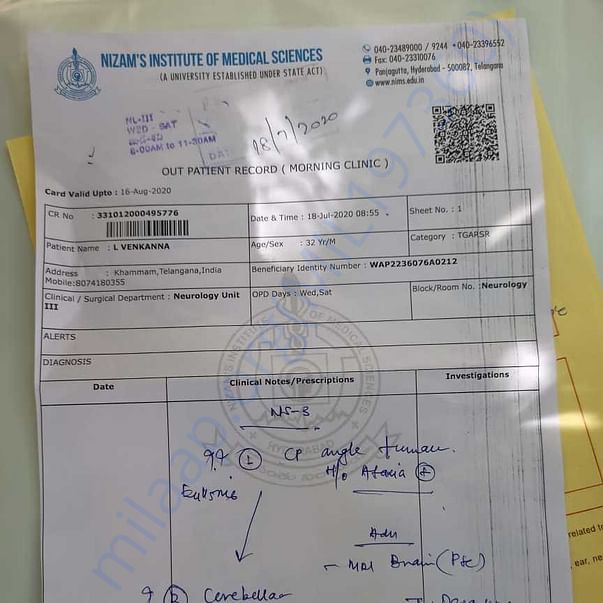 NIZAM'S INSTITUTE OF MEDICAL SCIENCES
(A UNIVERSITY ESTABLISHED UNDER STATE ACT)
040-23489000 / 9244 • 040-23396552
Fax: 040-23310076
Panjagutta, Hyderabad - 500082, Telangana
www.nims.edu.in
NL-III
WED - SAT
8-00AM to 11-30AM
DAT
18/7/2020
OUT PATIENT RECORD ( MORNING CLINIC )
Card Valid Upto : 16-Aug-2020
CR No : 331012000495776
Date & Time : 18-Jul-2020 08:55
Sheet No. : 1
Patient Name : L VENKANNA
Age/Sex : 32 Yr/M
Category : TGAPSR
Address : Khammam,Telangana,India
Mobile:8074180355
Beneficiary Identity Number : WAP2236076A0212
Clinical / Surgical Department : Neurology Unit
III
OPD Days : Wed,Sat
Block/Room No. :Neurology
ALERTS
DIAGNOSIS
Date
Clinical Notes/Prescriptions
Investigations
NS-3
① CP angle tumour
H/o Ataxia ⊕
Adv
- MRI Brain (P&C)
Cerebellar
milaap
related to
, ear, ne